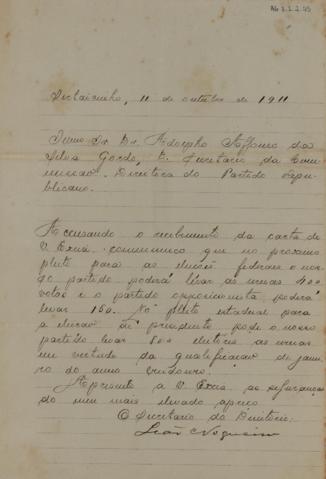 AG 1.1.2.45
11 de outubro de 1911
Illmo Sr. Dr. Adolpho Affonso da
Silva Gordo, D. Secretario da Com-
missão Directora do Partido Repu-
blicano.
Accusando o recebimento da carta de
V. Excia. communico que no proximo
pleito para as eleições federaes o nos-
so partido poderá levar ás urnas 400
votos e o partido opposicionista poderá
levar 160. No pleito estadual para
a eleição de presidente pode o nosso
partido levar 500 eleitores ás urnas
em virtude da qualificação de janei-
ro do anno vindouro.
Apresento a V. Excia. as seguranças
do meu mais elevado apreço
O Secretario do Directorio:
Leão Nogueira